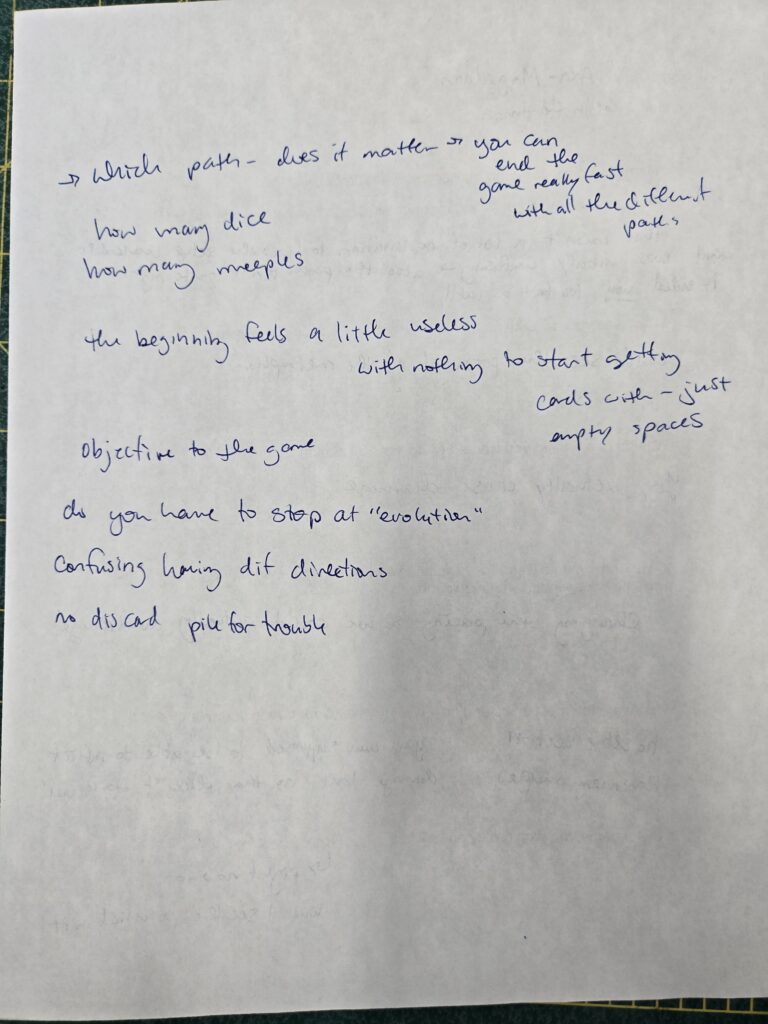 → which path - does it matter → you can
end the
game really fast
with all the different
paths
how many dice
how many meeples
the beginning feels a little useless
with nothing to start getting
cards with - just
empty spaces
Objective to the game
do you have to stop at "evolution"
Confusing having dif directions
no discard pile for trouble